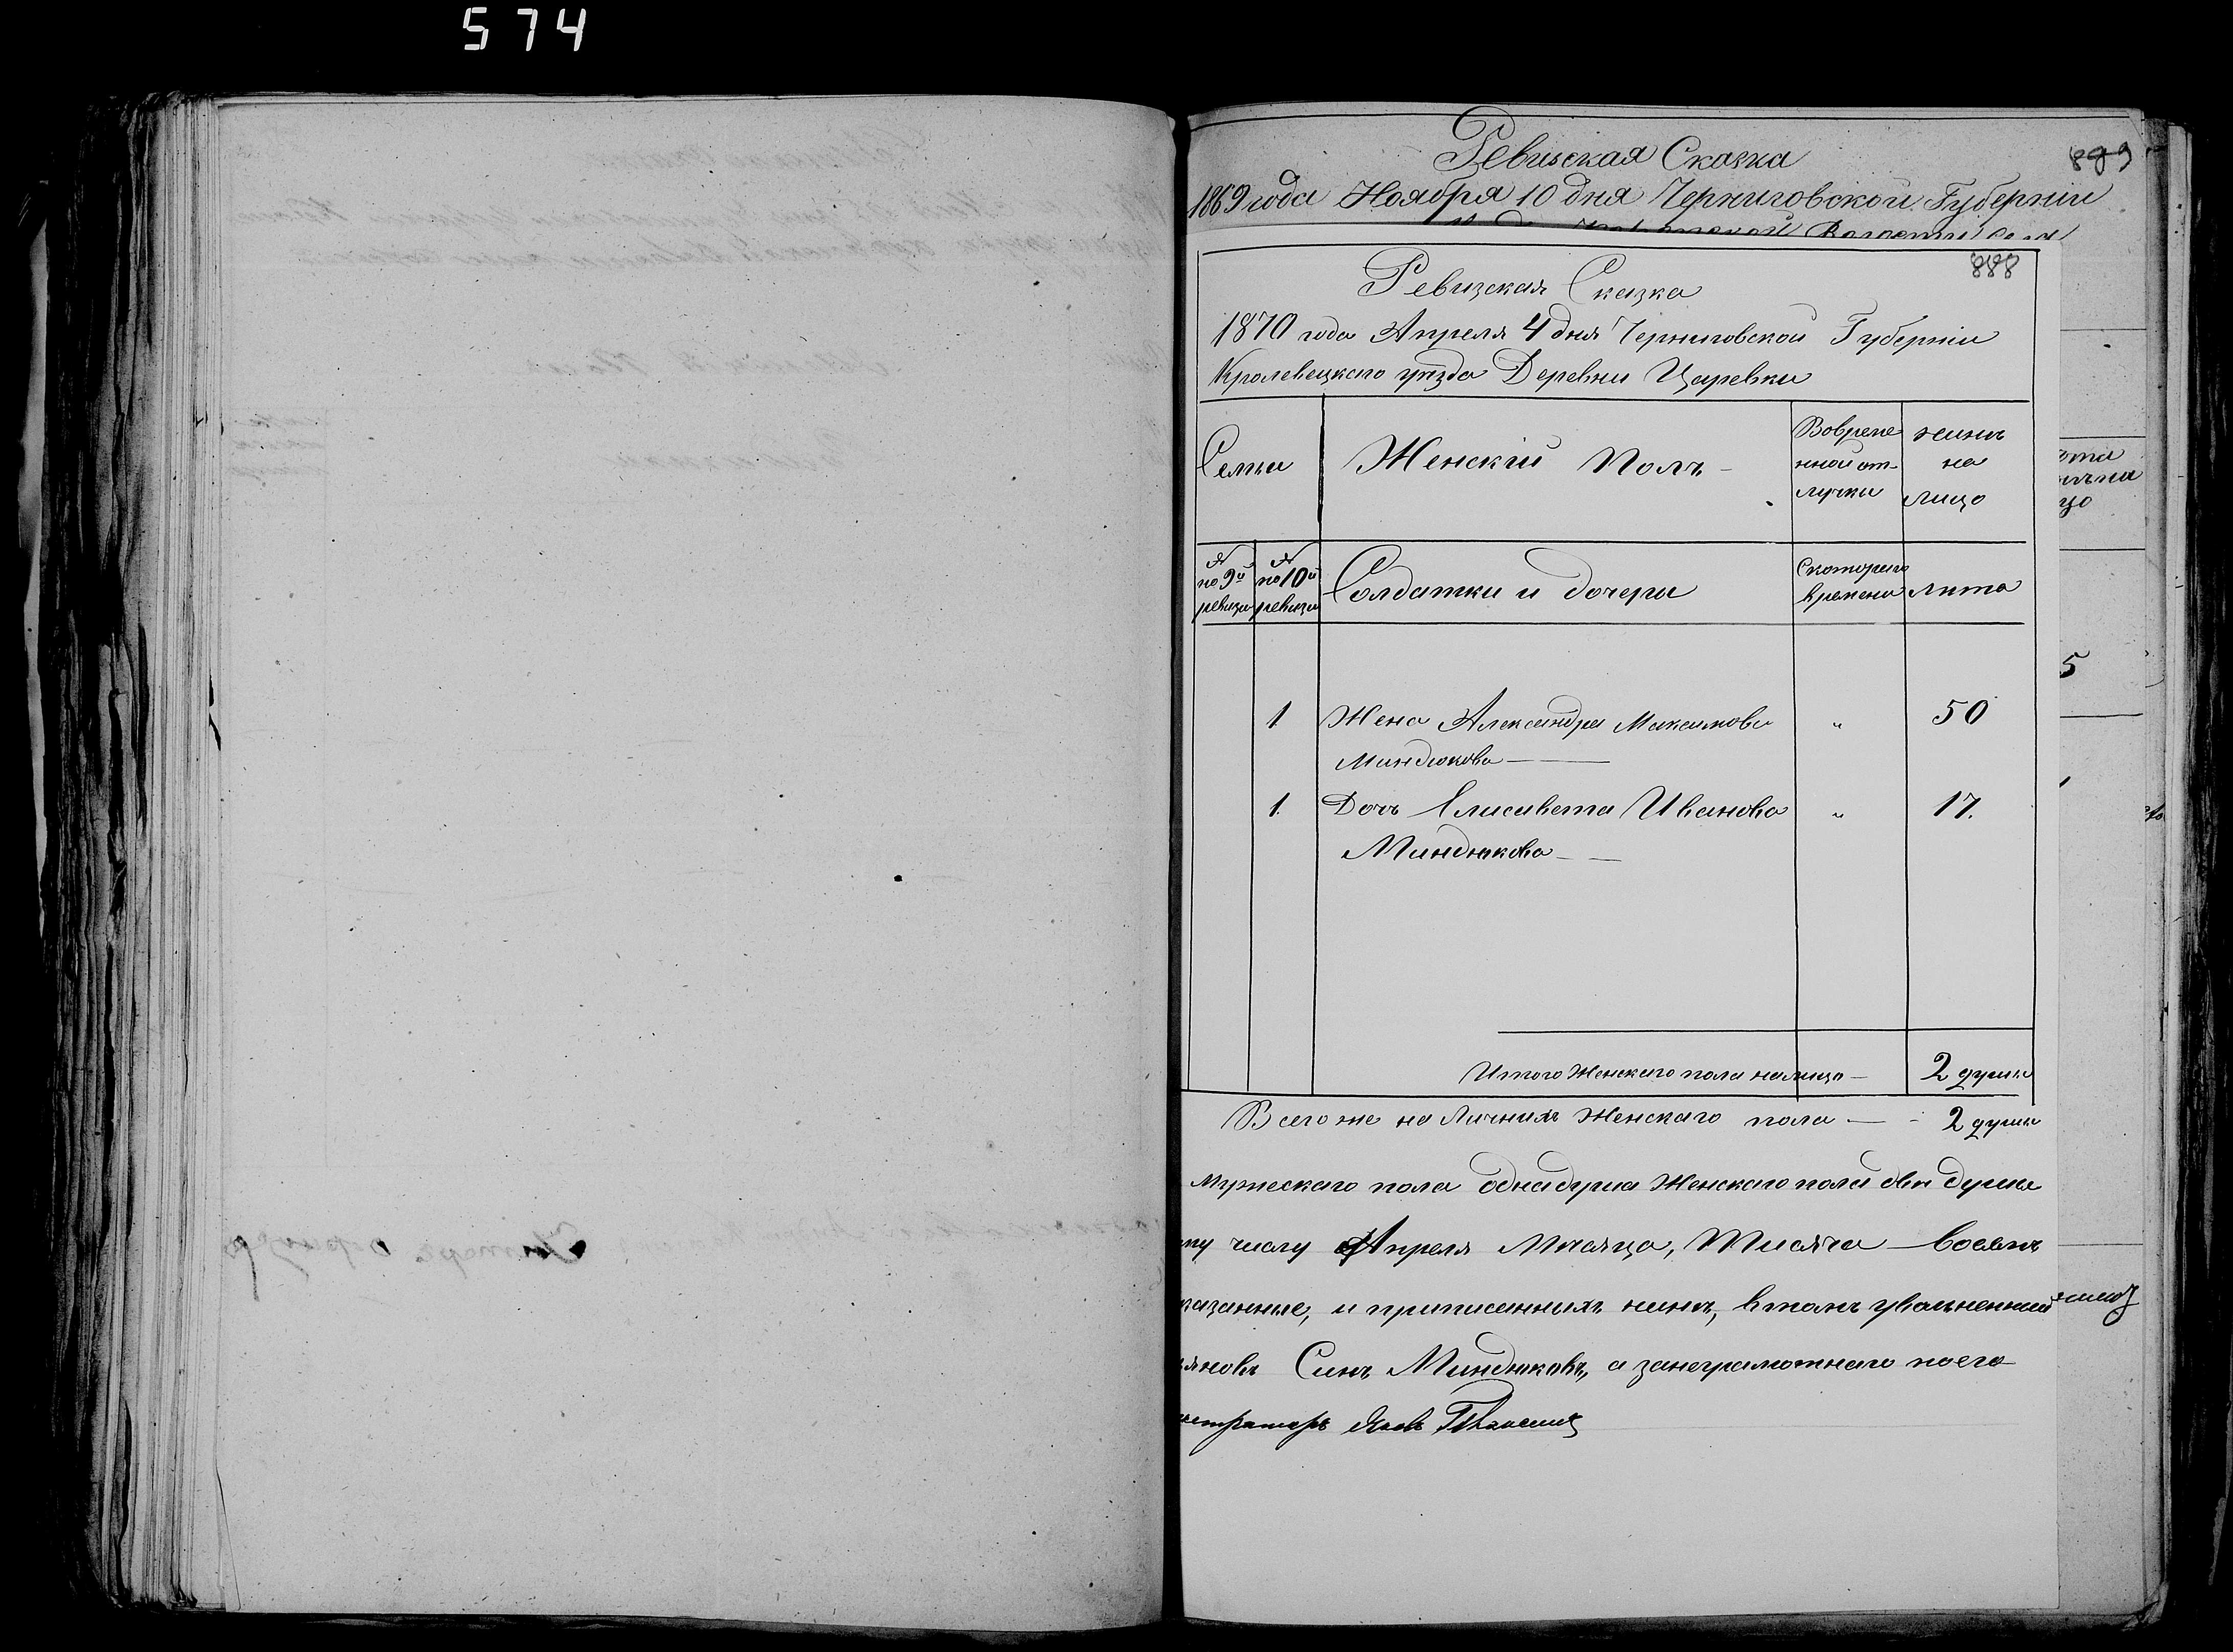 574
Ревизская Сказка
889
1869 года Ноября 10 дня Черниговской Губернии
Волости
888
Ревизская Сказка
1870 года Апреля 4 дня Черниговской Губерніи
Кролевецкаго уѣзда Деревни Царевки
Семьи
Женскій Полъ
Вовреме
нной от
лучки
нинѣ
на
лицо
№
по 9й
ревизи
№
по 10й
ревизи
Солдатки и дочери
Скотораго
времени
лѣта
5
1 Жена Александра Максимова " 50
Миндюкова
1. Дочь Елисавета Иванова " 17.
Миндюкова
Итого Женскаго пола налицо 2 души
Всего же на Личнихъ Женскаго пола 2 души
мужескаго пола одна душа Женскаго пола двѣ души
му числу Апреля Мѣсяца, Тисяча восемъ
казанные, и приписанныхъ нинѣ, в томъ уволненний
яновъ Синъ Миндюковъ, а занеграмотнаго поего
истраторъ Яковъ